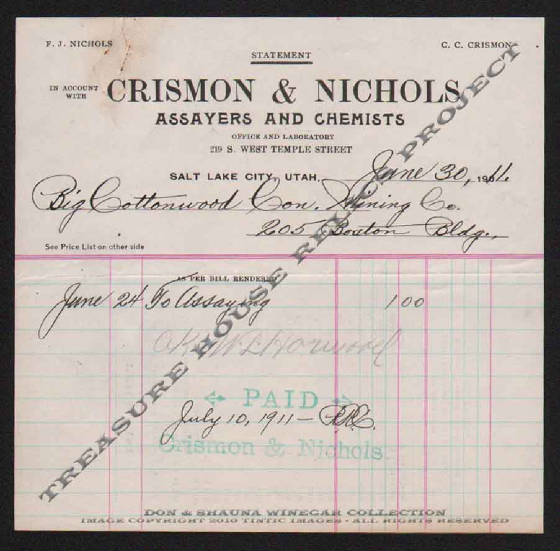 F. J. NICHOLS
C. C. CRISMON
STATEMENT
IN ACCOUNT
WITH
CRISMON & NICHOLS
ASSAYERS AND CHEMISTS
OFFICE AND LABORATORY
219 S. WEST TEMPLE STREET
SALT LAKE CITY, UTAH, June 30, 1911.
Big Cottonwood Con. Mining Co.
205 Boston Bldg.,
See Price List on other side
AS PER BILL RENDERED
June 24 To Assaying 1 00
O.K. W L Horwood
PAID
July 10, 1911 —
Crismon & Nichols.
TREASURE HOUSE RELICS PROJECT
DON & SHAUNA WINEGAR COLLECTION
IMAGE COPYRIGHT 2010 TINTIC IMAGES - ALL RIGHTS RESERVED